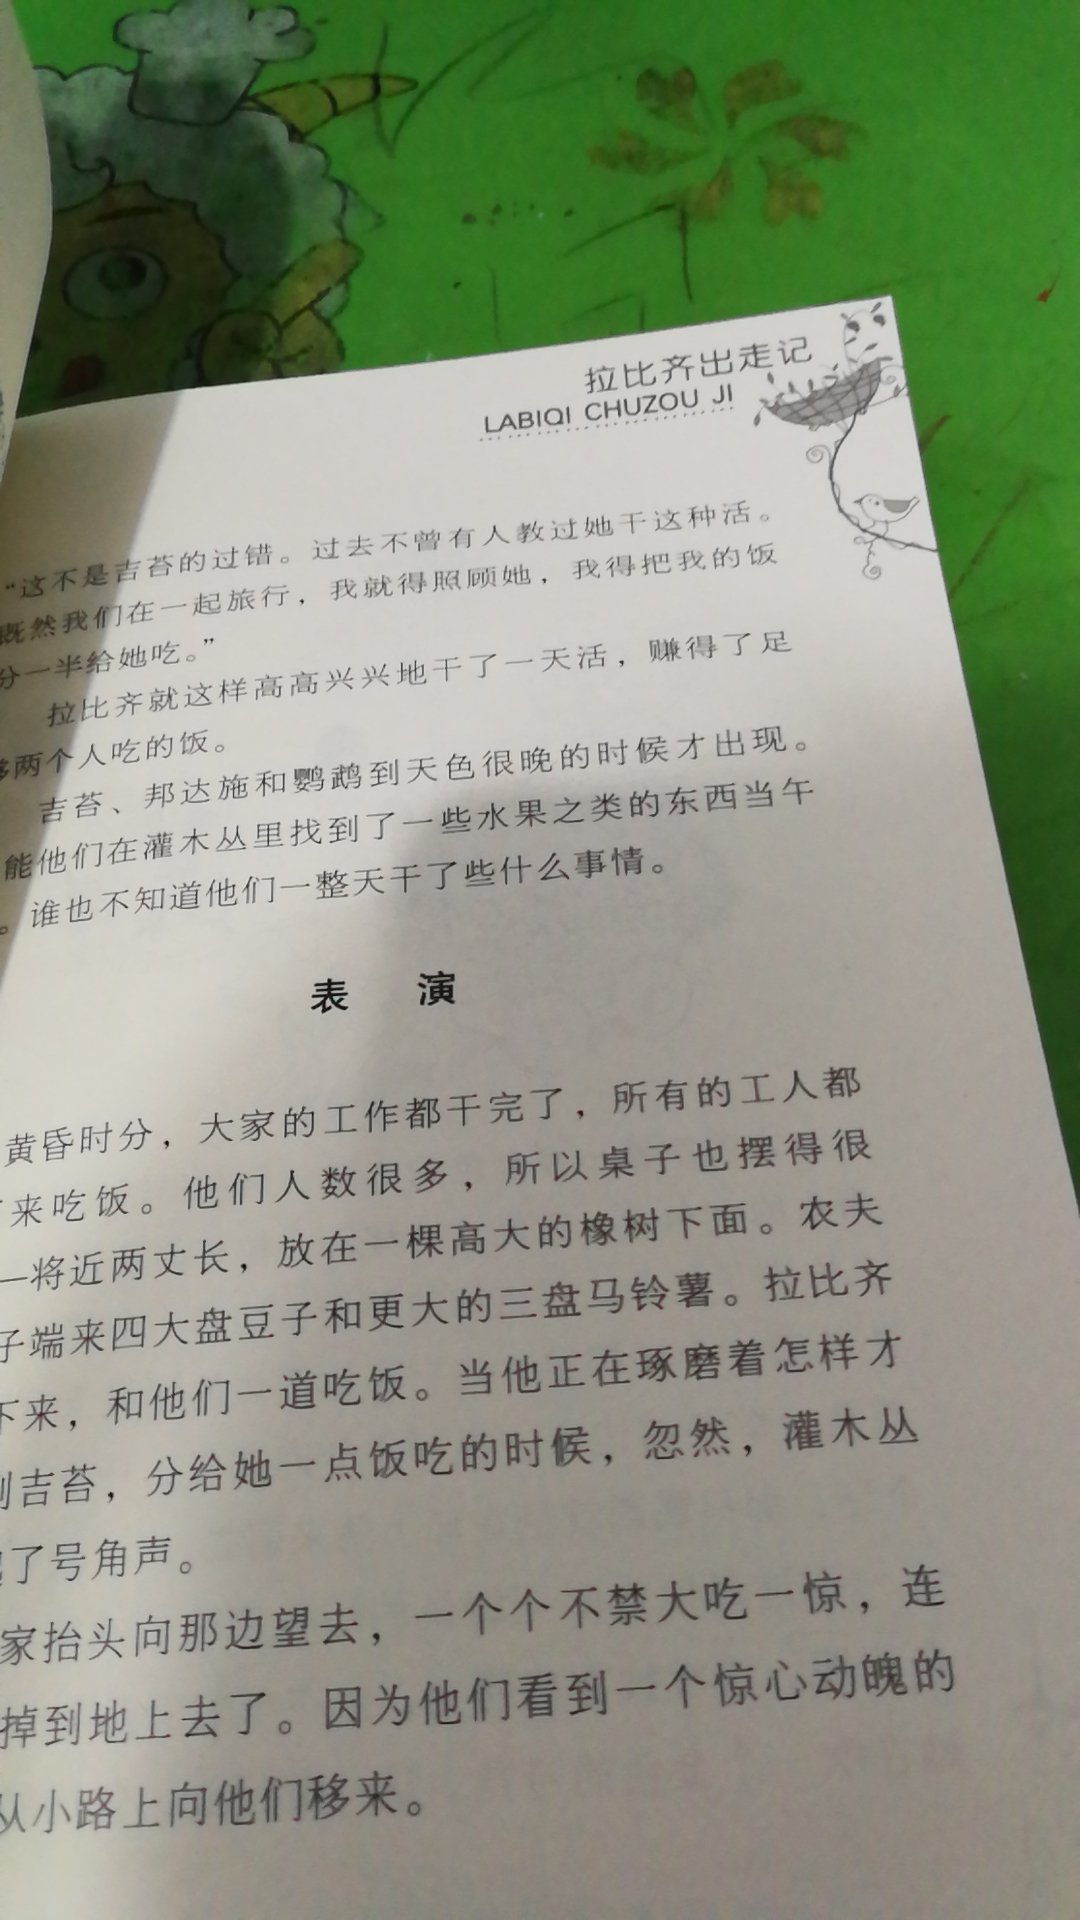 拉比齐出走记
LABIQI CHUZOU JI
“这不是吉苔的过错。过去不曾有人教过她干这种活。
既然我们在一起旅行，我就得照顾她，我得把我的饭
分一半给她吃。”
拉比齐就这样高高兴兴地干了一天活，赚得了足
够两个人吃的饭。
吉苔、邦达施和鹦鹉到天色很晚的时候才出现。
能他们在灌木丛里找到了一些水果之类的东西当午
。谁也不知道他们一整天干了些什么事情。
表 演
黄昏时分，大家的工作都干完了，所有的工人都
来吃饭。他们人数很多，所以桌子也摆得很
—将近两丈长，放在一棵高大的橡树下面。农夫
子端来四大盘豆子和更大的三盘马铃薯。拉比齐
下来，和他们一道吃饭。当他正在琢磨着怎样才
到吉苔，分给她一点饭吃的时候，忽然，灌木丛
了号角声。
家抬头向那边望去，一个个不禁大吃一惊，连
掉到地上去了。因为他们看到一个惊心动魄的
从小路上向他们移来。